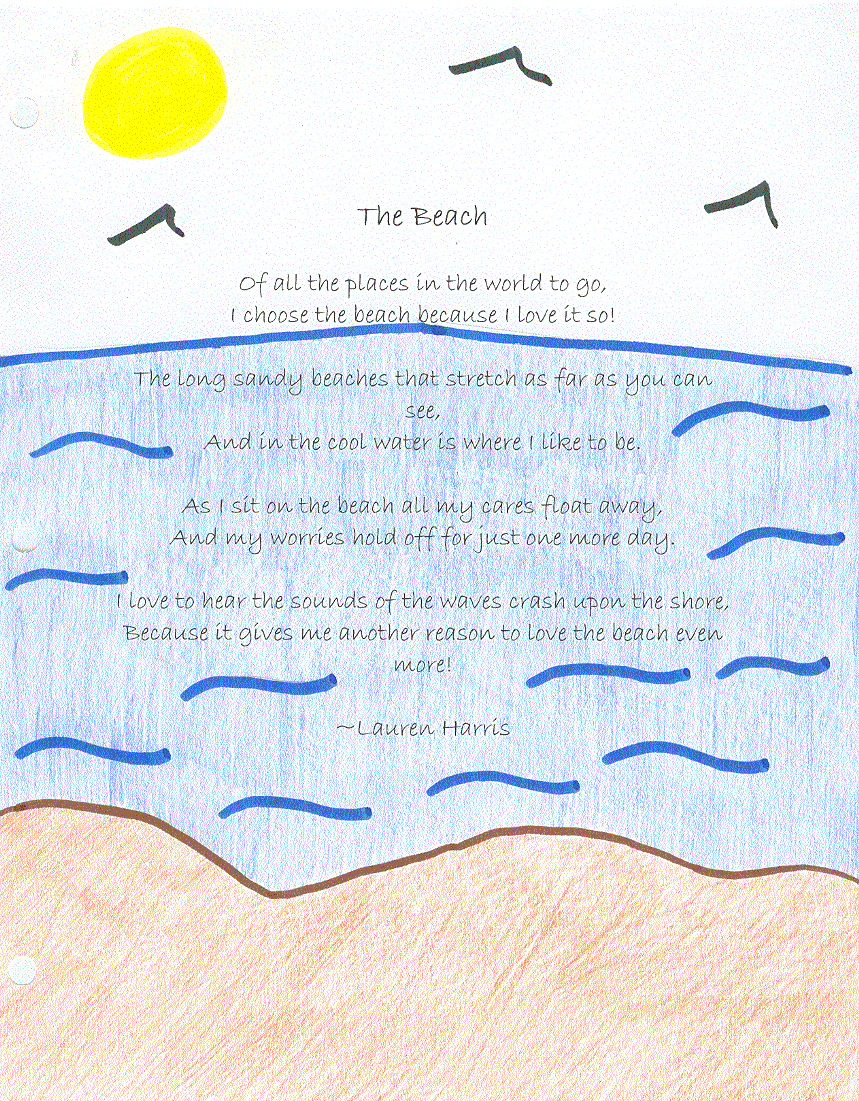 The Beach
Of all the places in the world to go,
I choose the beach because I love it so!
The long sandy beaches that stretch as far as you can
see,
And in the cool water is where I like to be.
As I sit on the beach all my cares float away,
And my worries hold off for just one more day.
I love to hear the sounds of the waves crash upon the shore,
Because it gives me another reason to love the beach even
more!
~Lauren Harris